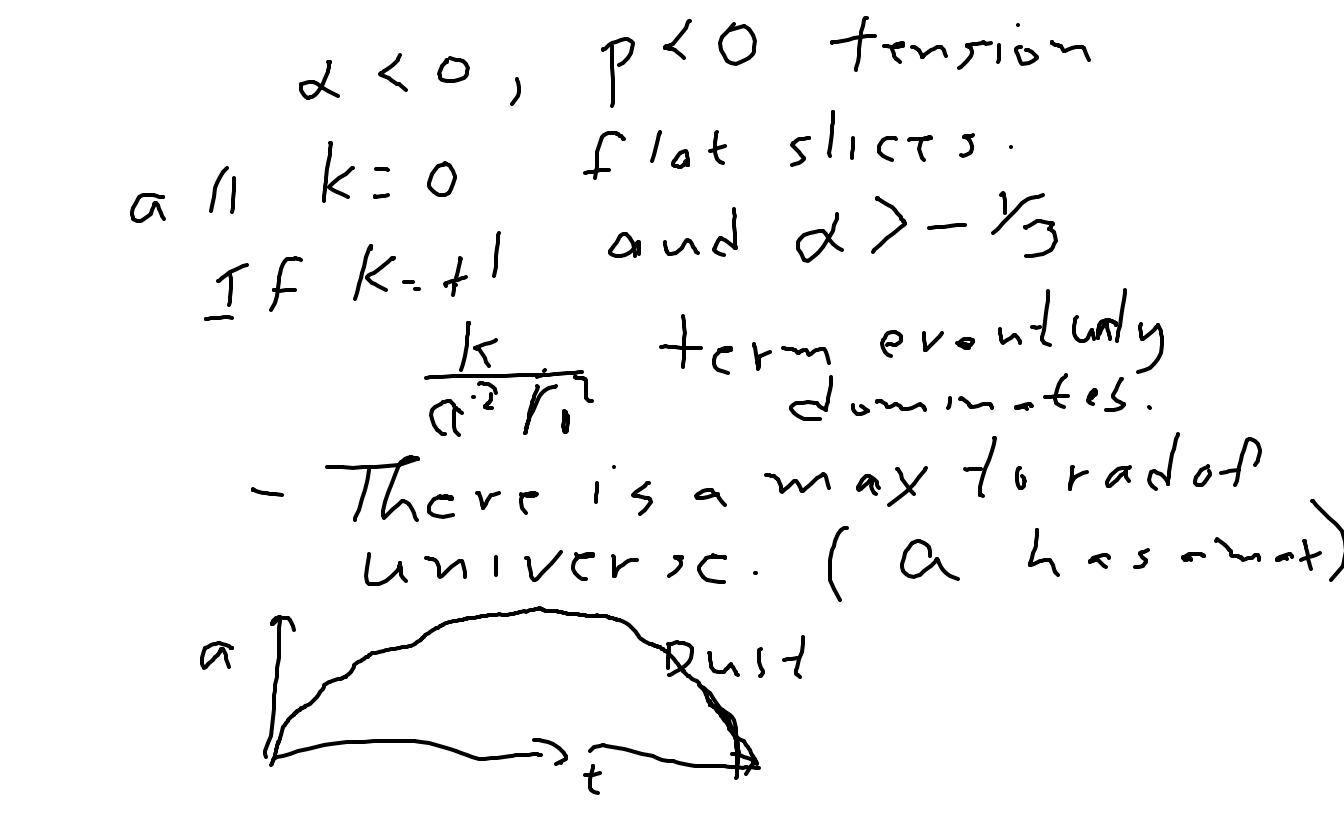 α < 0, p < 0 tension
all k = 0 flat slices.
If k = +1 and α > - 1/3
k/a²r₀² term eventually
dominates.
- There is a max to rad of
universe. (a has a max)
a
Dust
t